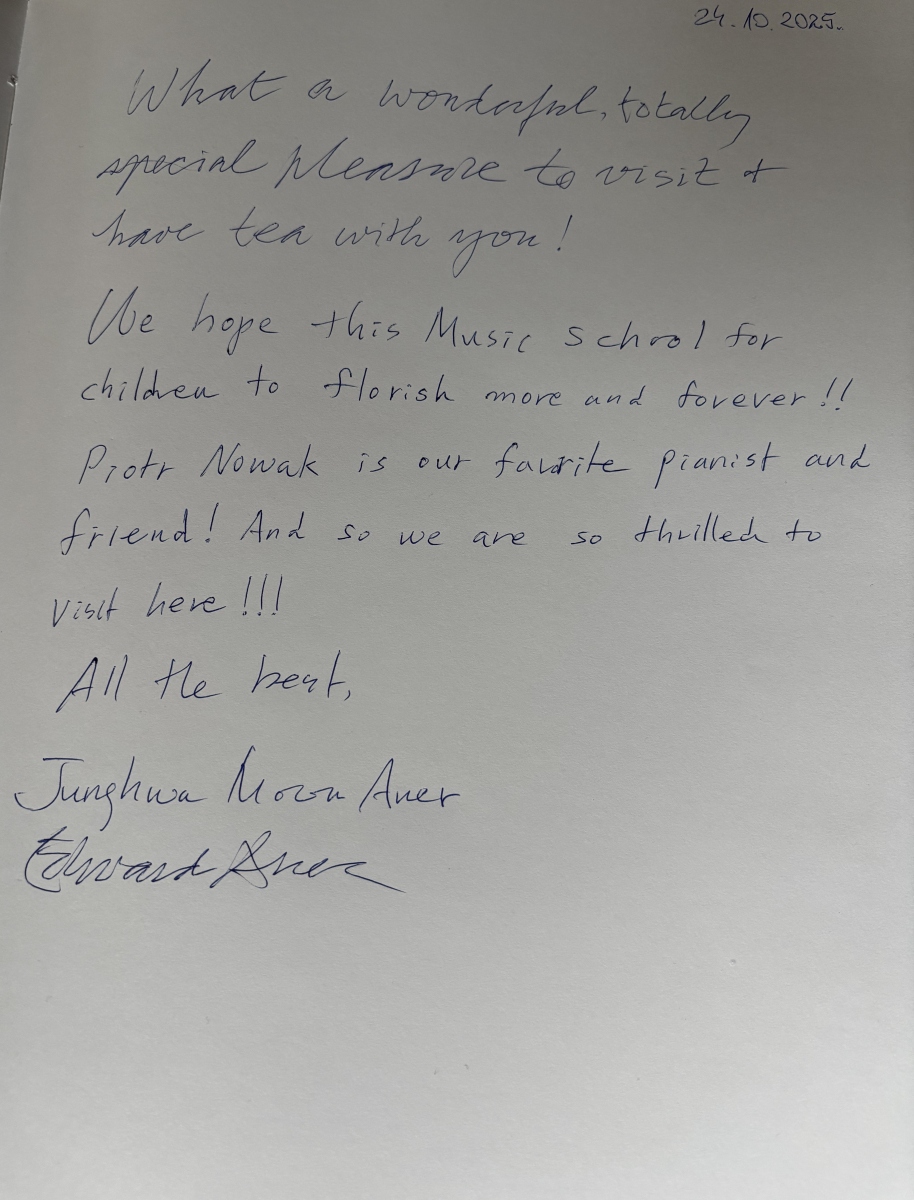 24.10.2025.
What a wonderful, totally
special pleasure to visit +
have tea with you!
We hope this Music School for
children to florish more and forever!!
Piotr Nowak is our favorite pianist and
friend! And so we are so thrilled to
visit here!!!
All the best,
Junghwa Moon Auer
Edward Auer